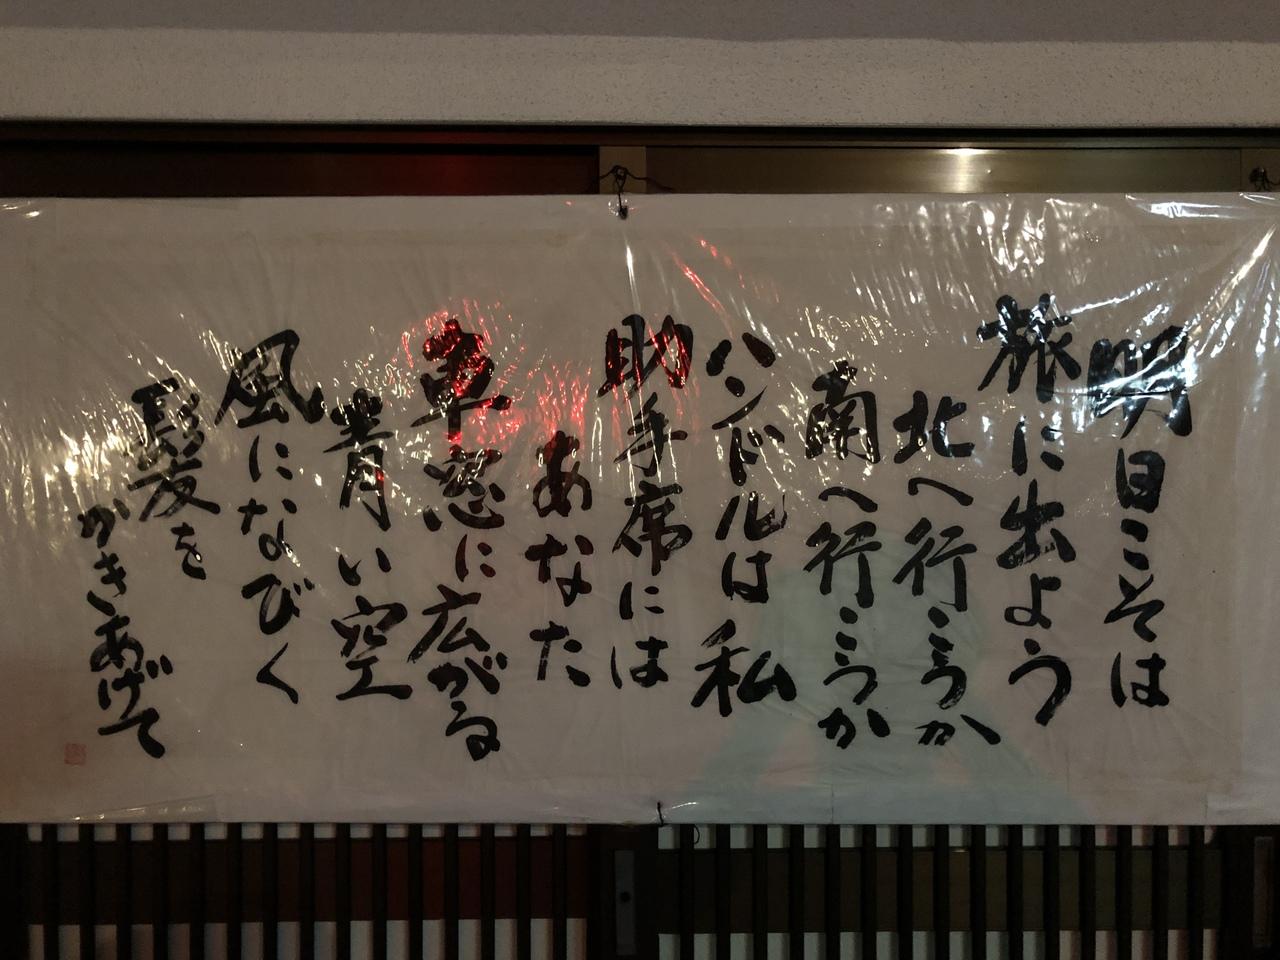 明日こそは
旅に出よう
北へ行こうか
南へ行こうか
ハンドルは私
助手席には
あなた
車窓に広がる
青い空
風になびく
髪を
かきあげて